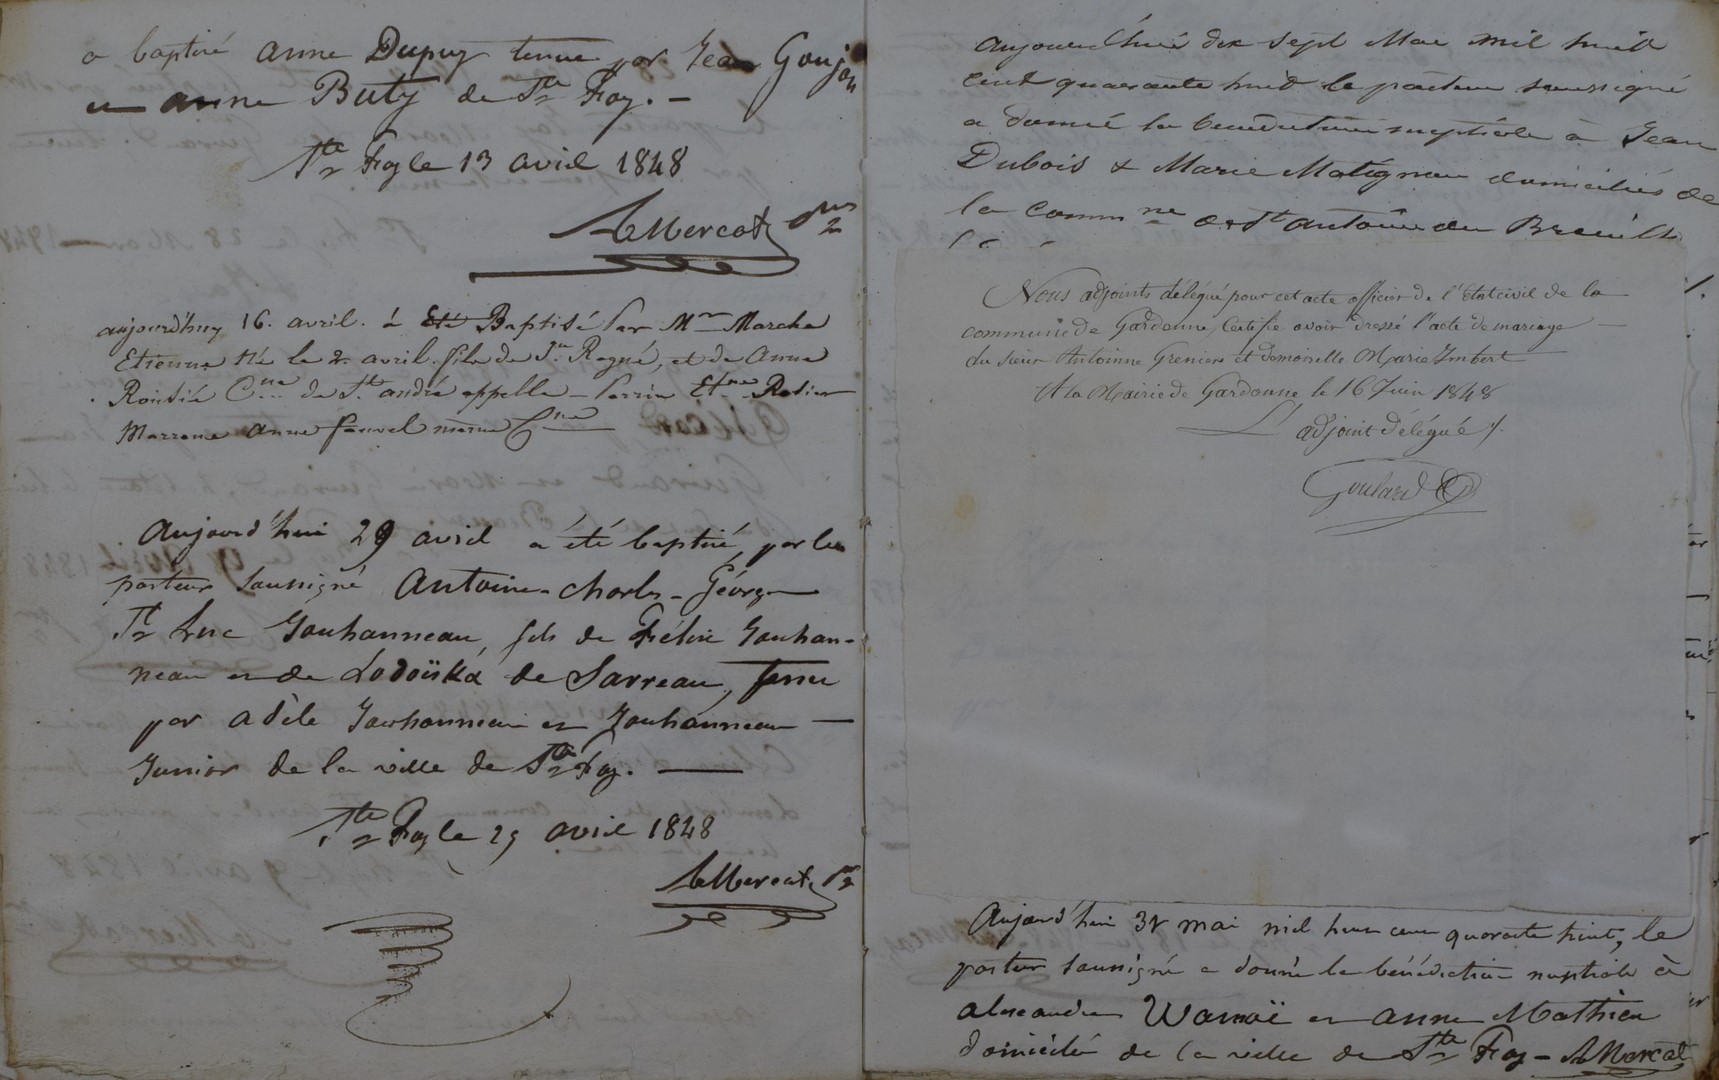 a baptisé anne Dupuy tenue par Jean Goujon
et anne Buty de Ste Foy. –
Ste Foy le 13 avril 1848
A Mercat pr
aujourd'huy 16. avril. à Eté Baptisé Par Mr Marche
Etienne Né le 2 avril. fils de Jn Ragné, et de anne
Roussié Cne de St andré appelle – Parrin Etne Ratier
Marrene anne fauvel même Cne
Aujourd'hui 29 avril a été baptisé, par le
pasteur soussigné Antoine-Charles-Géorge
St Luc Jouhanneau, fils de Félix Jouhan-
neau et de Lodoïska de Sarreau, tenu
par adèle Jouhanneau et Jouhanneau –
Junior de la ville de Ste Foy. –
Ste Foy le 29 avril 1848
A Mercat pr
aujourd'hui dix sept Mai mil huit
cent quarante huit le pasteur soussigné
a donné la benediction nuptiale à Jean
Dubois & Marie Matignon domiciliés de
la commne de St antoine du Breuilh
Nous adjoints délégué pour cet acte officier de l'Etat civil de la
commune de Gardonne, Certifie avoir dressé l'acte de mariage
du sieur Antoinne Greniers et demoiselle Marie Imbert
A la Mairie de Gardonne le 16 Juin 1848
L'adjoint délégué
Goulard
Aujourd'hui 31 mai mil huit cent quarante huit, le
pasteur soussigné a donné la bénédiction nuptiale à
alexandre et anne Mathieu
domicilié de la ville de Ste Foy – A Mercat